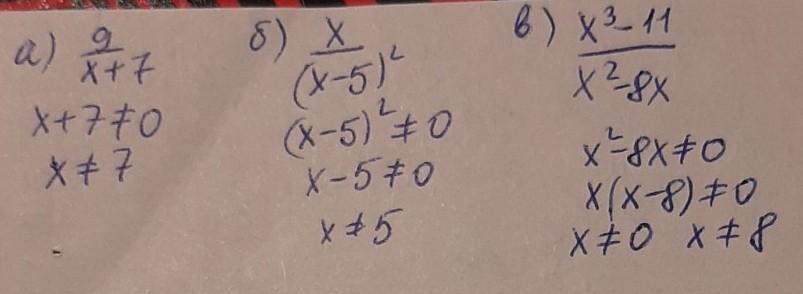 а) 9/(x+7)
x+7≠0
x≠7
б) x/(x-5)²
(x-5)²≠0
x-5≠0
x≠5
в) (x³-11)/(x²-8x)
x²-8x≠0
x(x-8)≠0
x≠0 x≠8